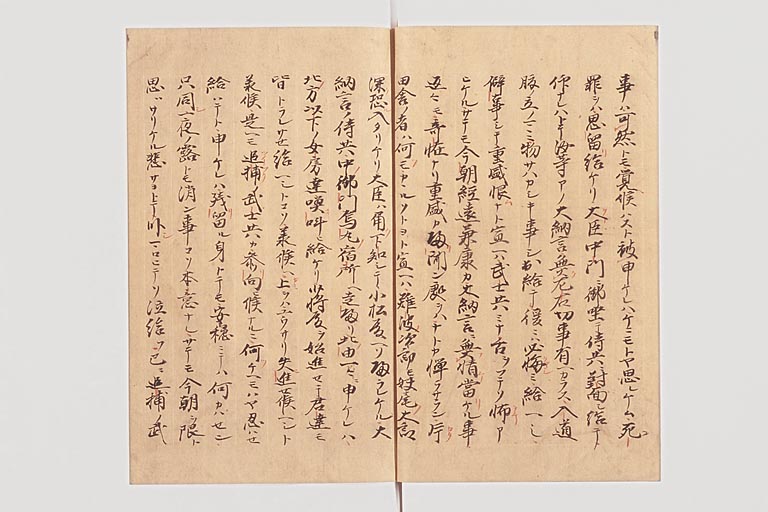 事ハ可然トモ覚候ハスト被申ケレハケニモトヤ思レケム死
罪ヲハ思留給ケリ大臣中門ニ御坐テ侍共ニ対面シ給テ
汝等アノ大納言無左右切事有ヘカラス入道
腹立ノマヽニ物サハカシキ事シ出給テ後ニハ必悔ミ給ヘシ
僻事シテ重盛恨ナト宣ヘハ武士共ミナ舌ヲフテソ怖ア
ヒケルサテモ今朝経遠兼康カ大納言ニ無情当ケル事
返々モ奇怪ナリ重盛カ帰聞ン処ヲハナトカ憚ラサラン片
田舎ノ者ハ何モカヽルソトヨト宣ヘハ難波次郎モ妹尾太郎
深恐入タリケリ大臣ハ角下知シテ小松殿ヘソ帰ラレケル大
納言ノ侍共中御門烏丸宿所ヘ走帰リ此由申ケレハ
北方以下ノ女房達喚叫ヒ給ケリ少将殿ヲ始進セテ君達モ
皆トラレサセ給ヘシトコソ承候ヘ上ハ夕サリ失進セ候ヘシト
承候是ヘモ追捕ノ武士共カ参向候ナルニ何ヘモハヤ忍ハセ
給ハテト申ケレハ残留ル身トテモ安穏ニテハ何カハセン
只同一夜ノ露トモ消ン事コソ本意ナレサテモ今朝ヲ限ト
思ハサリケル悲サヨトテ臥マロヒテソ泣給フ已ニ追捕ノ武